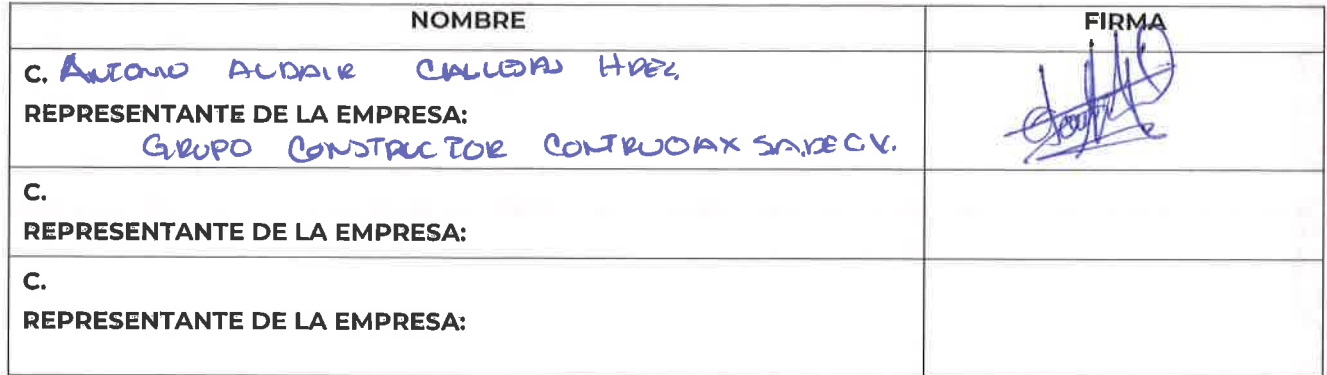 NOMBRE FIRMA
C. ANTONIO ALDAIR HDEZ.
REPRESENTANTE DE LA EMPRESA:
GRUPO CONSTRUCTOR SA.DE C.V.
C.
REPRESENTANTE DE LA EMPRESA:
C.
REPRESENTANTE DE LA EMPRESA: